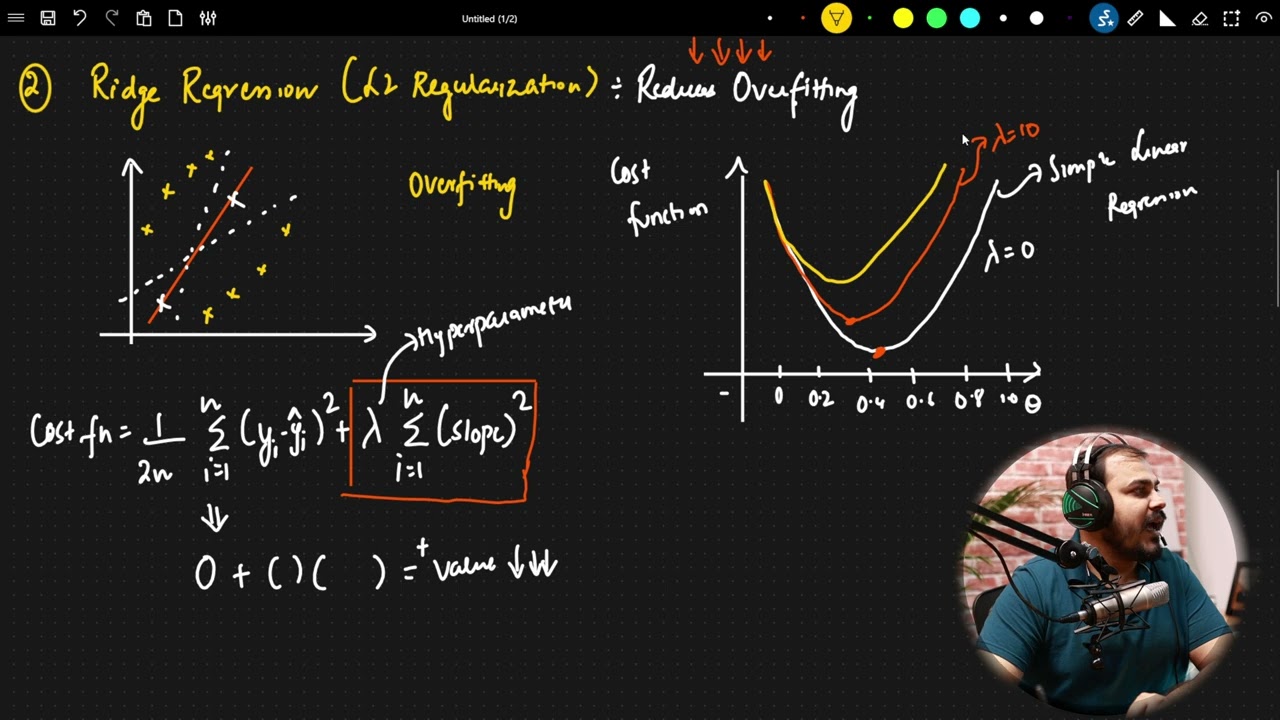 Untitled (1/2)
② Ridge Regression (L2 Regularization) ÷ Reduces Overfitting
Overfitting
Cost function
λ=10
Simple Linear Regression
λ=0
Hyperparameter
Cost fn = 1/2n n Σ i=1 (yi-ŷi)² + λ n Σ i=1 (slope)²
- 0 0.2 0.4 0.6 0.8 1.0 θ
0 + ( ) ( ) = + value ↓↓↓